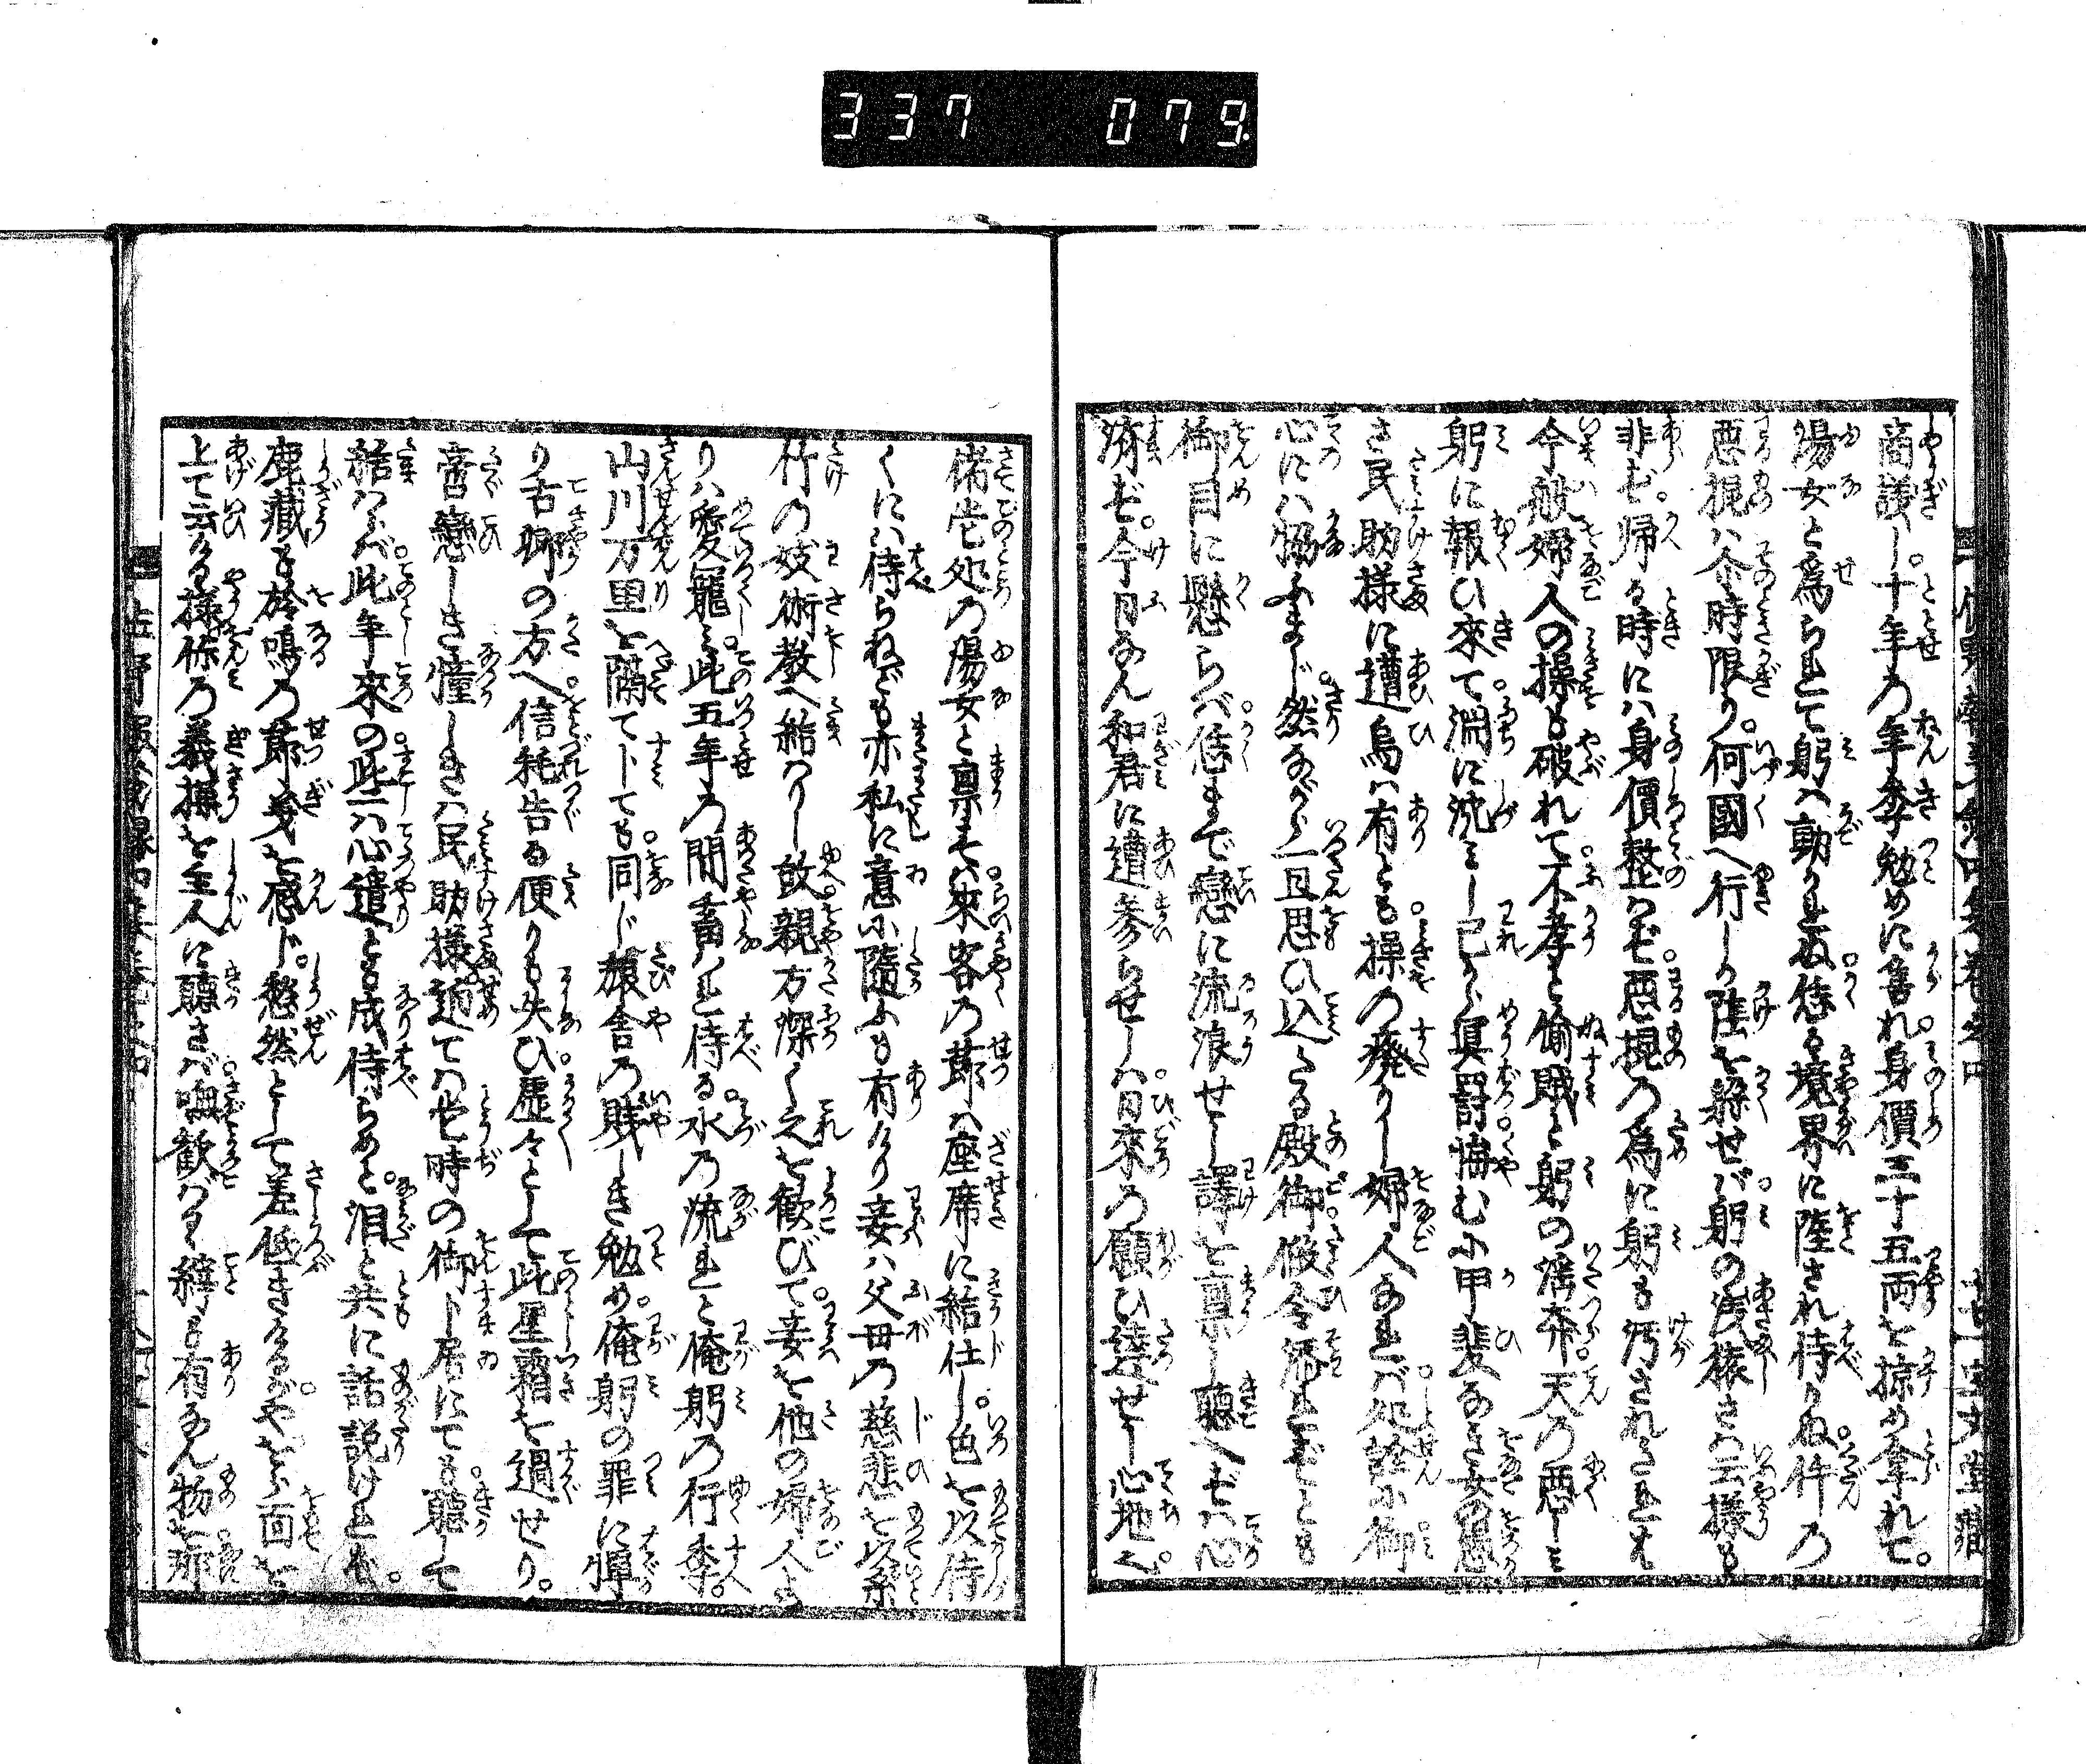 337 079.
商議し。十年の年季勉めに售れ身價三十五両を掠め拿れて。
湯女と為られて躬へ勤られぬ恁る境界に陸され侍りぬ件の
悪棍ハ尒時限り。何國へ行しか陸を躱せバ躬の浅猿さハ云様も
非ず。帰る時にハ身價整ハず悪棍の為に躬も汚されたれハ
今般婦人の操も破れて不孝と偷賊と躬の淫奔天の悪しミ
躬に報ひ來て淵に沈ミし己から冥罸悔むに甲斐なき女の意
さ民助様に遭ひハ有とも操の廃りし婦人なれバ処詮御
心にハ協ふまじ然ながら一旦思ひ込たる殿御假令添れずとも
御目に懸らバ恁まで戀に流浪せし譯を稟し聴へずハ心
済ず。今日なん和君に遭参らせしハ日來の願ひ達せし心地之。
偖壱処の湯女と稟すハ來客の節ハ座席に給仕し。色を以侍
くにハ侍らねども亦私に意に隨ふも有けり妾ハ父母の慈悲を以糸
竹の妓術教へ給ハりし故親方深く之を歓びて。妾を他の婦人よ
りハ愛寵ミ此五年の間畜ハれ侍る水の流れと俺躬の行季。
山川万里を隔て卜ても同じ旅舎の賎しき勉め。俺躬の罪に憚
り古郷の方へ信耗告る便りも失ひ虚々として此星霜を過せり。
啻戀しき憧しきハ民助様迚てハ壱時の御卜居にても聴して
給ハらバ此年來の些ハ心遣とも成侍らめと泪と共に話説けれバ。
鹿蔵も於鳴の節義を感じ。愁然として差低きけるが。やをら面を
上て云ける様你の義操を主人に聴さバ嘸歓バるゝ縡も有なん物を那